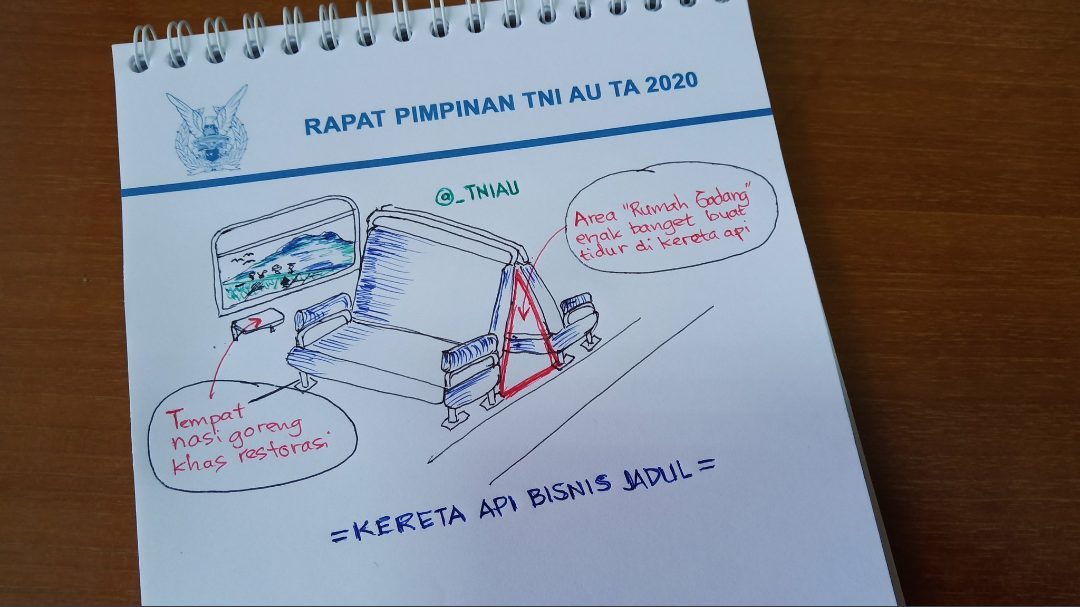 RAPAT PIMPINAN TNI AU TA 2020
@_TNIAU
Area "Rumah Gadang"
enak banget buat
tidur di kereta api
Tempat
nasi goreng
khas restorasi
=KERETA API BISNIS JADUL=